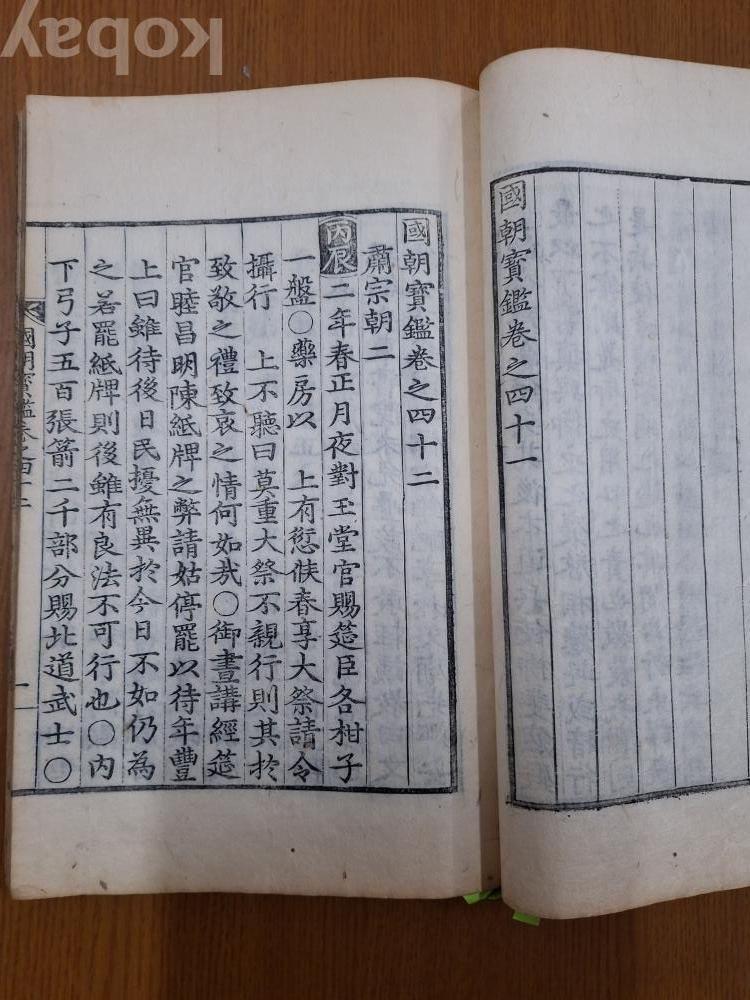 國朝寶鑑卷之四十一
國朝寶鑑卷之四十二
肅宗朝二
丙辰二年春正月夜對玉堂官賜筵臣各柑子
一盤○藥房以 上有愆候春享大祭請令
攝行 上不聽曰莫重大祭不親行則其於
致敬之禮致哀之情何如㢤○御晝講經筵
官睦昌明陳紙牌之弊請姑停罷以待年豐
上曰雖待後日民擾無異於今日不如仍為
之若罷紙牌則後雖有良法不可行也○內
下弓子五百張箭二千部分賜北道武士○
國朝寶鑑卷之四十二
kobay